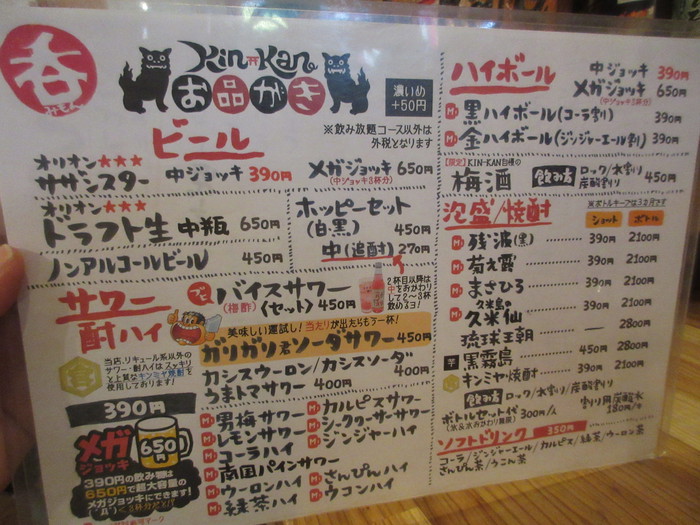 呑
みもん
Kin Kan
お品がき
濃いめ
+50円
※飲み放題コース以外は
外税となります
ビール
オリオン★★★
サザンスター 中ジョッキ 390円
メガジョッキ 650円
(中ジョッキ3杯分)
オリオン★★★
ドラフト生 中瓶 650円
ノンアルコールビール 450円
ホッピーセット
(白・黒) 450円
中(追酎) 270円
2杯目以降は
中をおかわり
して2〜3杯
飲めるヨ!
サワー
酎ハイ
バイスサワー
(梅酢) 〈セット〉 450円
美味しい運試し! 当たりが出たらもう一杯!
ガリガリ君ソーダサワー 450円
当店、リキュール系以外の
サワー・酎ハイはスッキリ
と上質なキンミヤ焼酎を
使用しております!
カシスウーロン/カシスソーダ 400円
うまトマサワー 400円
390円
メガ
ジョッキ
650円
390円の飲み物は
650円で超大容量の
メガジョッキにできます!
男梅サワー
レモンサワー
コーラハイ
南国パインサワー
ウーロンハイ
緑茶ハイ
カルピスサワー
シークヮーサーサワー
ジンジャーハイ
さんぴんハイ
ウコンハイ
ハイボール
中ジョッキ 390円
メガジョッキ 650円
(中ジョッキ3杯分)
黒ハイボール(コーラ割) 390円
金ハイボール(ジンジャーエール割) 390円
【限定】KIN-KAN自慢の
梅酒 飲み方 ロック/水割/炭酸割り 450円
泡盛/焼酎
※ボトルキープは3ヵ月です
ショット ボトル
残波(黒) 390円 2100円
菊之露 390円 2100円
まさひろ 390円 2100円
久米島の
久米仙 390円 2100円
琉球王朝 — 2800円
芋 黒霧島 450円 2800円
キンミヤ焼酎 390円 2100円
飲み方 ロック/水割/炭酸割り
ボトルセット代 300円/人
(氷&水おかわり無限)
割り用炭酸水
180円/本
ソフトドリンク 350円
コーラ/ジンジャーエール/カルピス/緑茶/ウーロン茶
さんぴん茶/うこん茶